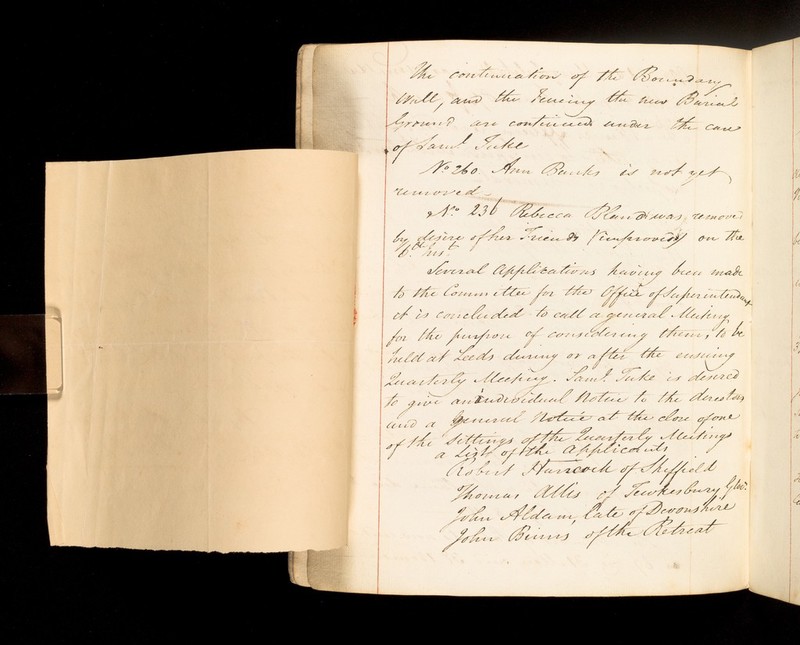 The continuation of the Boundary
Wall, and the Fencing the new Burial
Ground are continued under the care
of Saml. Tuke
No. 260. Ann Banks is not yet
removed
No. 236 Rebecca Bland was removed
by desire of her Friends (improved) on the
6th. Inst.
Several Applications having been made
to the Committee for the Office of Superintendent
it is concluded to call a general Meeting
for the purpose of considering them, to be
held at Leeds during or after the ensuing
Quarterly Meeting. Saml. Tuke is desired
to give an individual Notice to the directors
and a general Notice at the close of one
of the Sittings of the Quarterly Meetings
a List of the Applicants
Robert of Sheffield
Thomas Allis of Tewkesbury Glosr.
John Aldam, late of Devonshire
John Binns of the Retreat